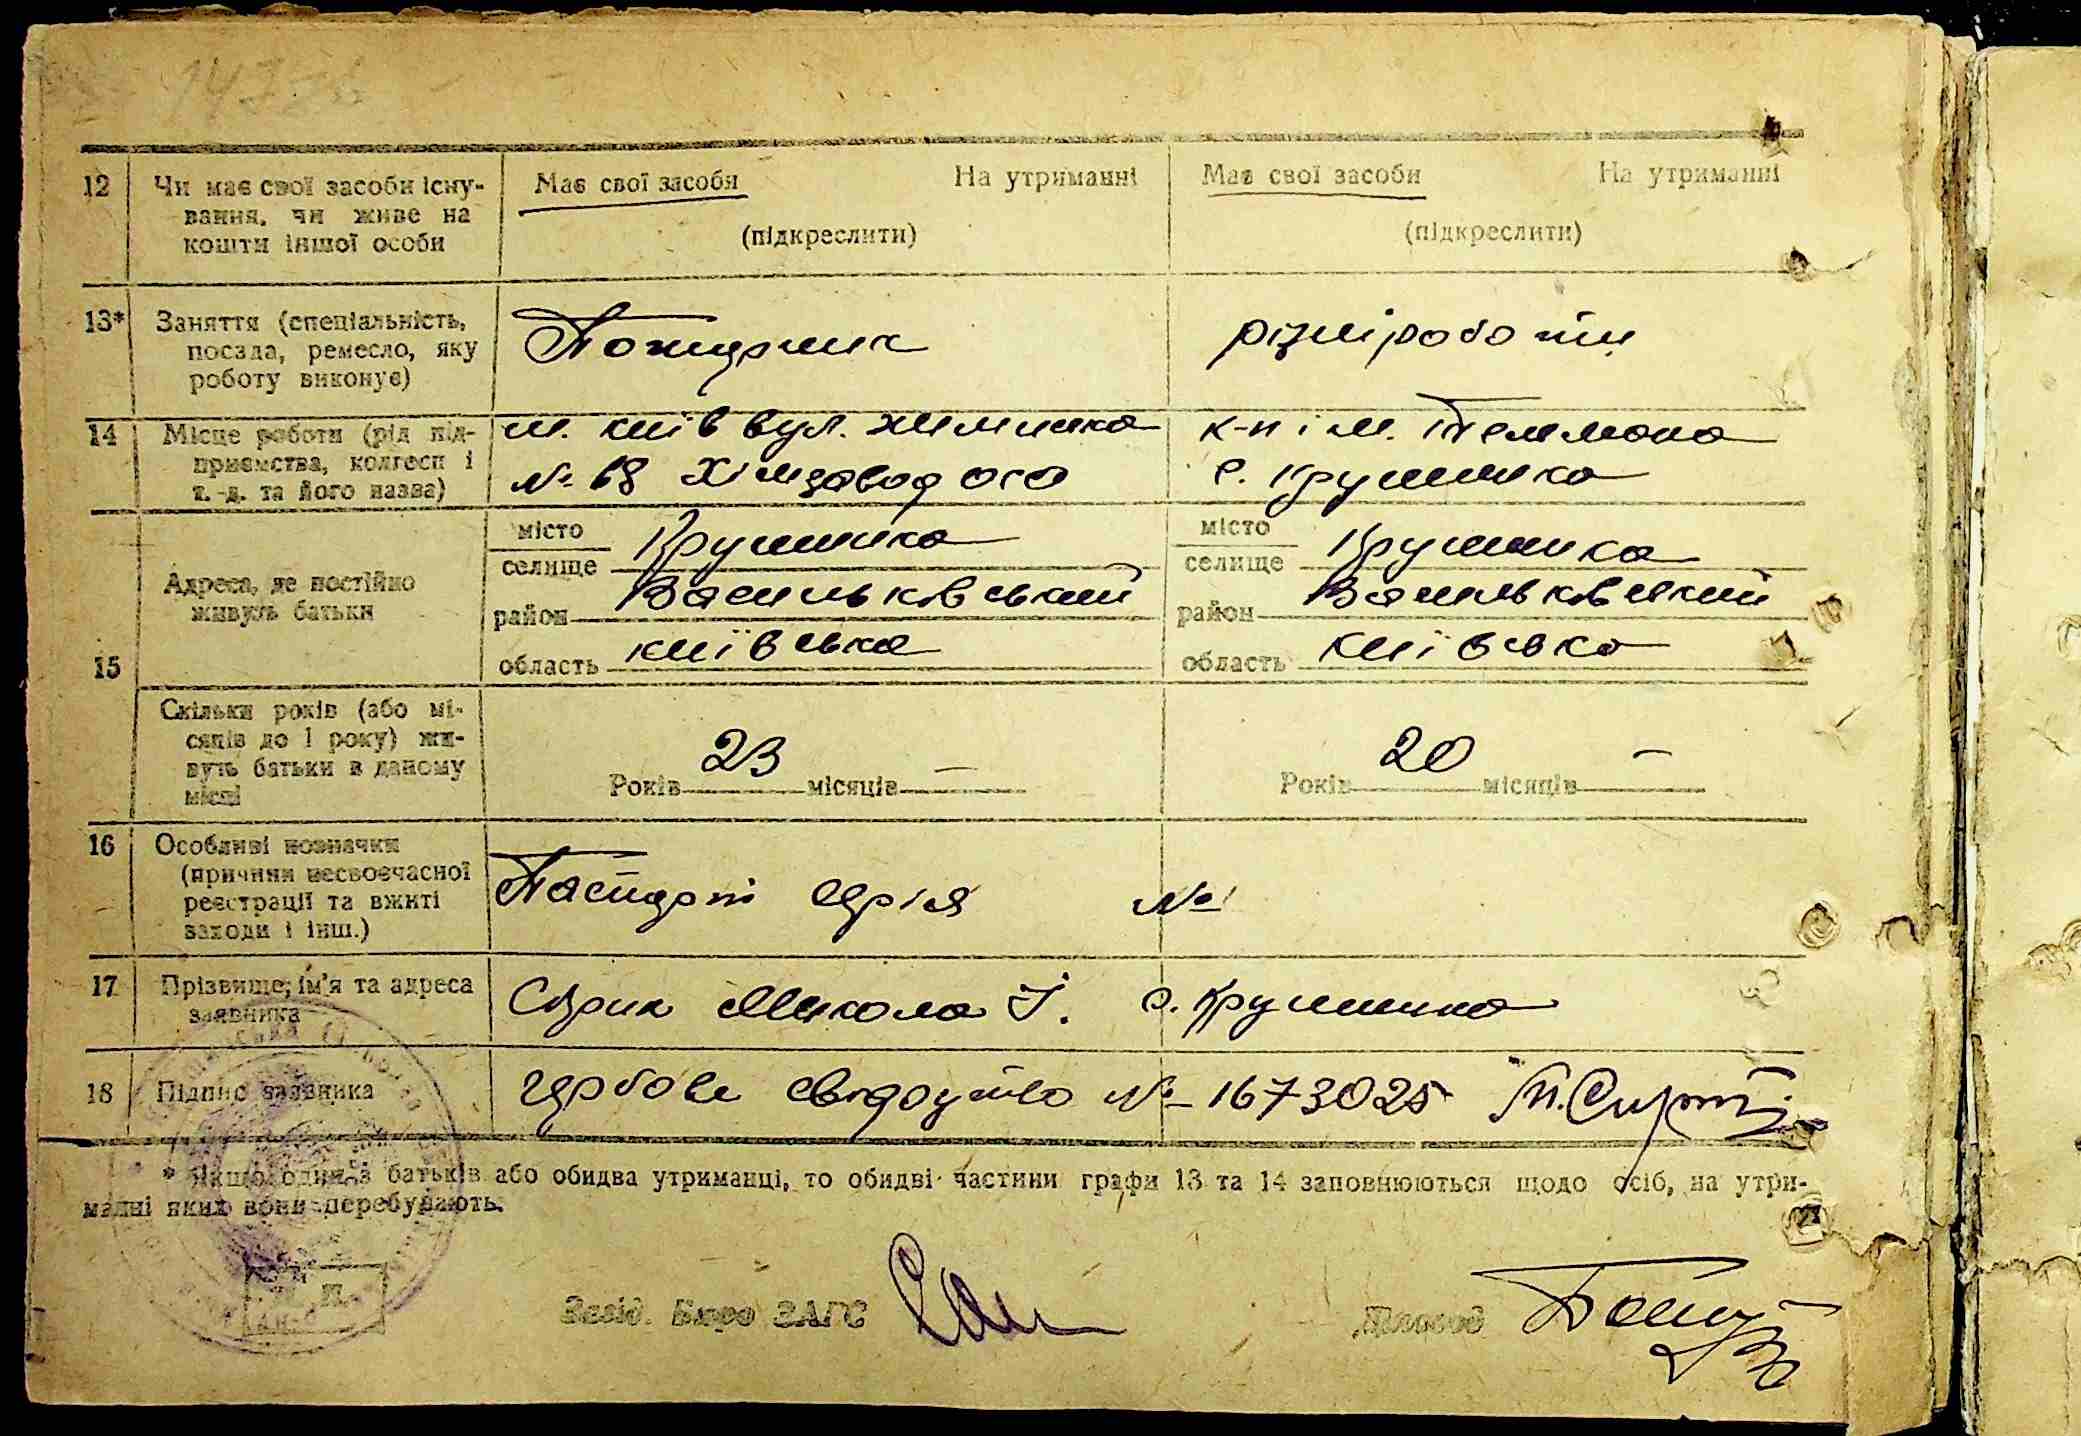 12 Чи має свої засоби існу- Має свої засоби На утриманні Має свої засоби На утриманні
вання, чи живе на
кошти іншої особи (підкреслити) (підкреслити)
13* Заняття (спеціальність, посада, ремесло, яку роботу виконує) Пожарник різні роботи
14 Місце роботи (рід під- м. київ вул. к-п ім. Тельмана
приємства, колгосп і № 68 Хімзавод с. Крушинка
т. д. та його назва)
місто Крушинка місто Крушинка
селище селище
Адреса, де постійно
живуть батьки район Васильківський район Васильківський
15 область київська область київська
Скільки років (або мі-
сяців до 1 року) жи-
вуть батьки в даному
місці Років 23 місяців — Років 20 місяців —
16 Особливі позначки
(причини несвоєчасної Паспорт серія №
реєстрації та вжиті
заходи і інш.)
17 Прізвище, ім'я та адреса
заявника Микола І. с. Крушинка
18 Підпис заявника гербове свідоцтво № 1673025
* Якщо один з батьків або обидва утриманці, то обидві частини графи 13 та 14 заповнюються щодо осіб, на утри-
манні яких вони перебувають.
Завід. Бюро ЗАГС Діловод